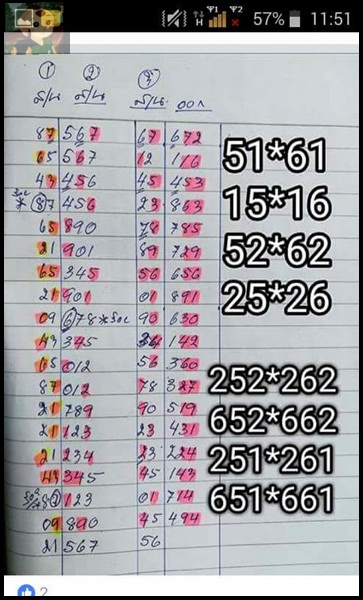 57% 11:51
① ② ③
บ/น บ/น บ/น ออก
87 567 67 672
65 567 12 116
43 456 45 453
* 87 456 23 863
65 890 78 785
21 901 89 729
65 345 56 656
21 901 01 891
09 678 * 90 630
43 345 34 142
65 012 56 360
87 012 78 327
21 789 90 519
21 123 23 431
21 234 23 224
43 345 45 143
123 01 714
09 890 45 494
21 567 56
51*61
15*16
52*62
25*26
252*262
652*662
251*261
651*661
2